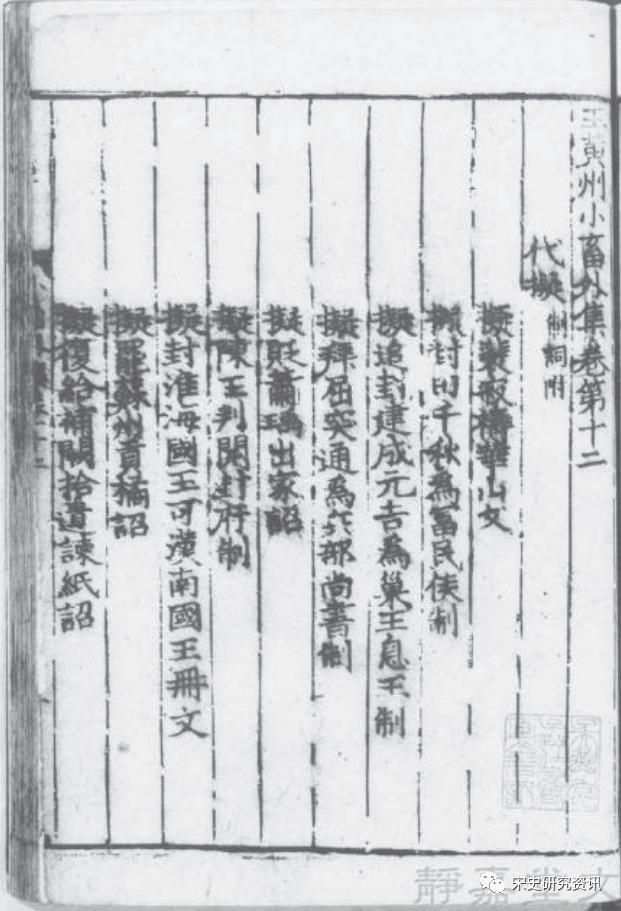 王黄州小畜外集卷第十二
代擬制詞附
擬裴寂禱華山文
擬封田千秋為富民侯制
擬追封建成元吉為巢王息王制
擬拜屈突通為兵部尚書制
擬貶蕭瑀出家詔
擬陳王判開封府制
擬封淮海國王可漢南國王冊文
擬罷蘇州貢橘詔
擬復給補闕拾遺諫紙詔
靜嘉堂文
宋史研究资讯